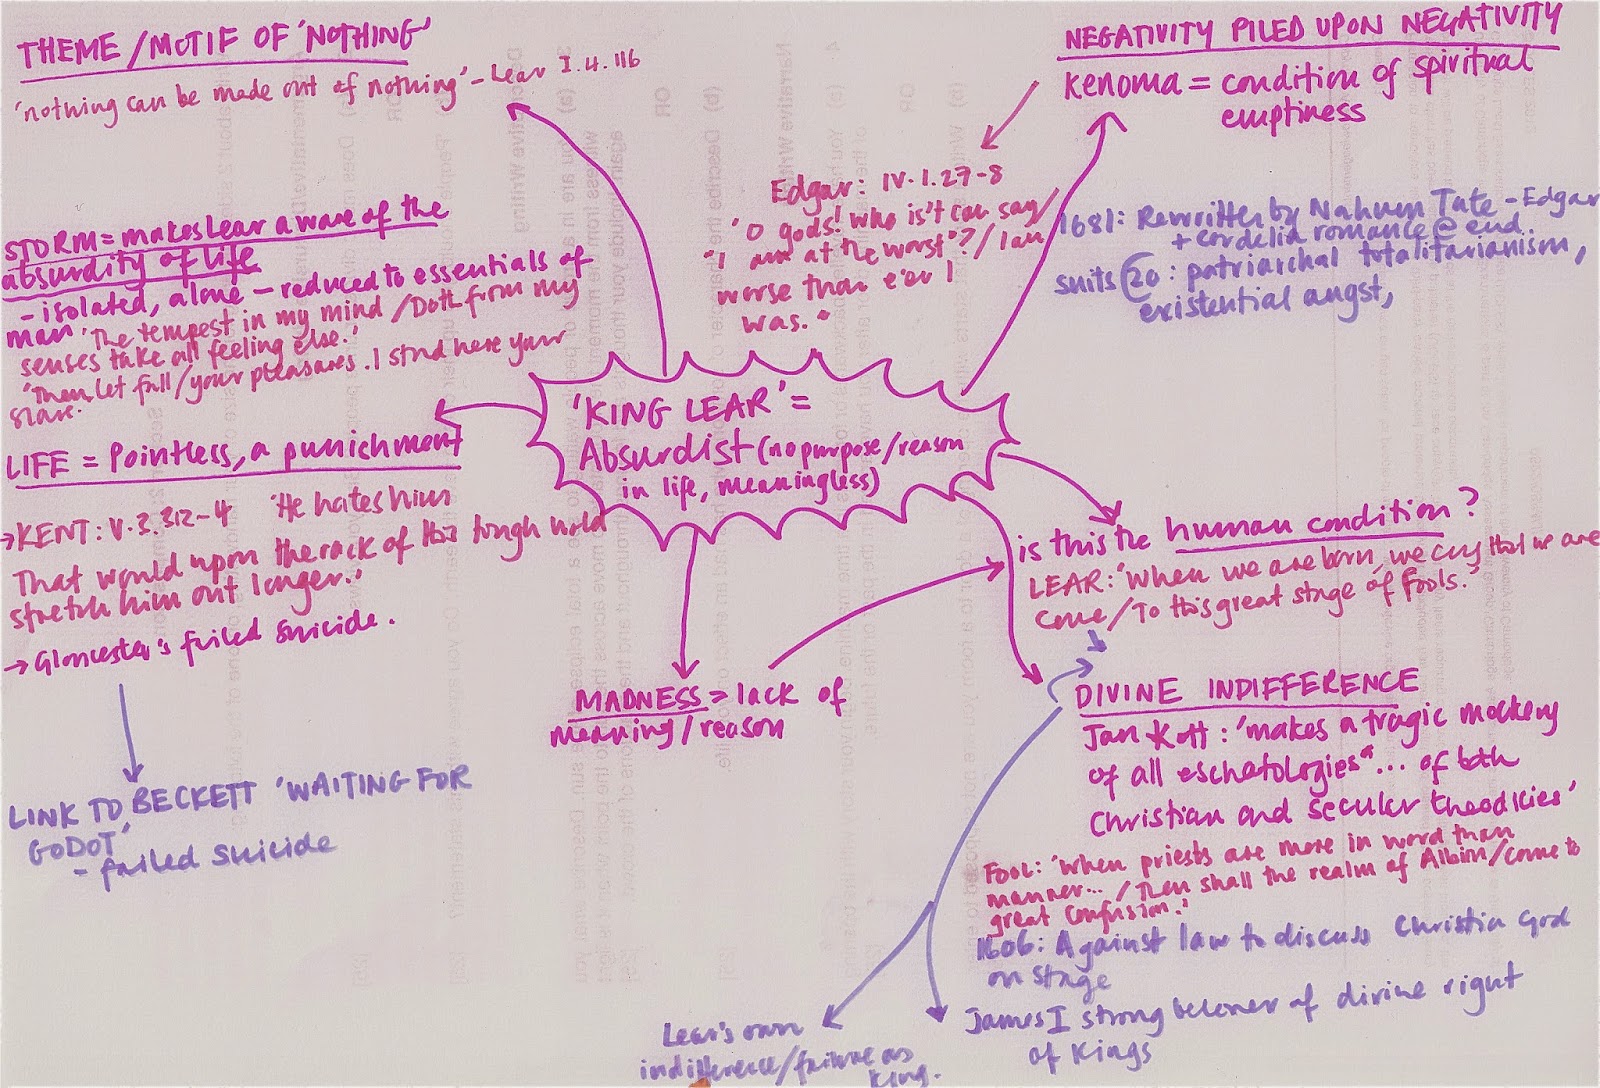 THEME/MOTIF OF 'NOTHING'
'nothing can be made out of nothing' - Lear I.4.116
NEGATIVITY PILED UPON NEGATIVITY
Kenoma = condition of spiritual
emptiness
Edgar: IV.1.27-8
'O gods! Who is't can say/
"I am at the worst"?/I am
worse than e'er I
was."
1681: Rewritten by Nahum Tate - Edgar
+ Cordelia romance @ end.
suits C20: patriarchal totalitarianism,
existential angst,
STORM = makes Lear aware of the
absurdity of life
- isolated, alone - reduced to essentials of
man 'The tempest in my mind/Doth from my
senses take all feeling else.'
'Then let fall/your pleasures. I stand here your
slave.'
'KING LEAR' =
Absurdist (no purpose/reason
in life, meaningless)
LIFE = Pointless, a punichment
→ KENT: V.3.312-4 'He hates him
That would upon the rack of this tough world
stretch him out longer.'
→ Gloucester's failed suicide.
LINK TO BECKETT 'WAITING FOR
GODOT'
- failed suicide
MADNESS = lack of
meaning/reason
is this the human condition?
LEAR: 'When we are born, we cry that we are
come/To this great stage of fools.'
DIVINE INDIFFERENCE
Jan Kott: 'makes a tragic mockery
of all eschatologies"... of both
Christian and secular theodicies'
FOOL: 'When priests are more in word than
manner... /Then shall the realm of Albion/come to
great confusion.'
1606: Against law to discuss Christian God
on stage
James I strong believer of divine right
of Kings
Lear's own
indifference/failure as
King.